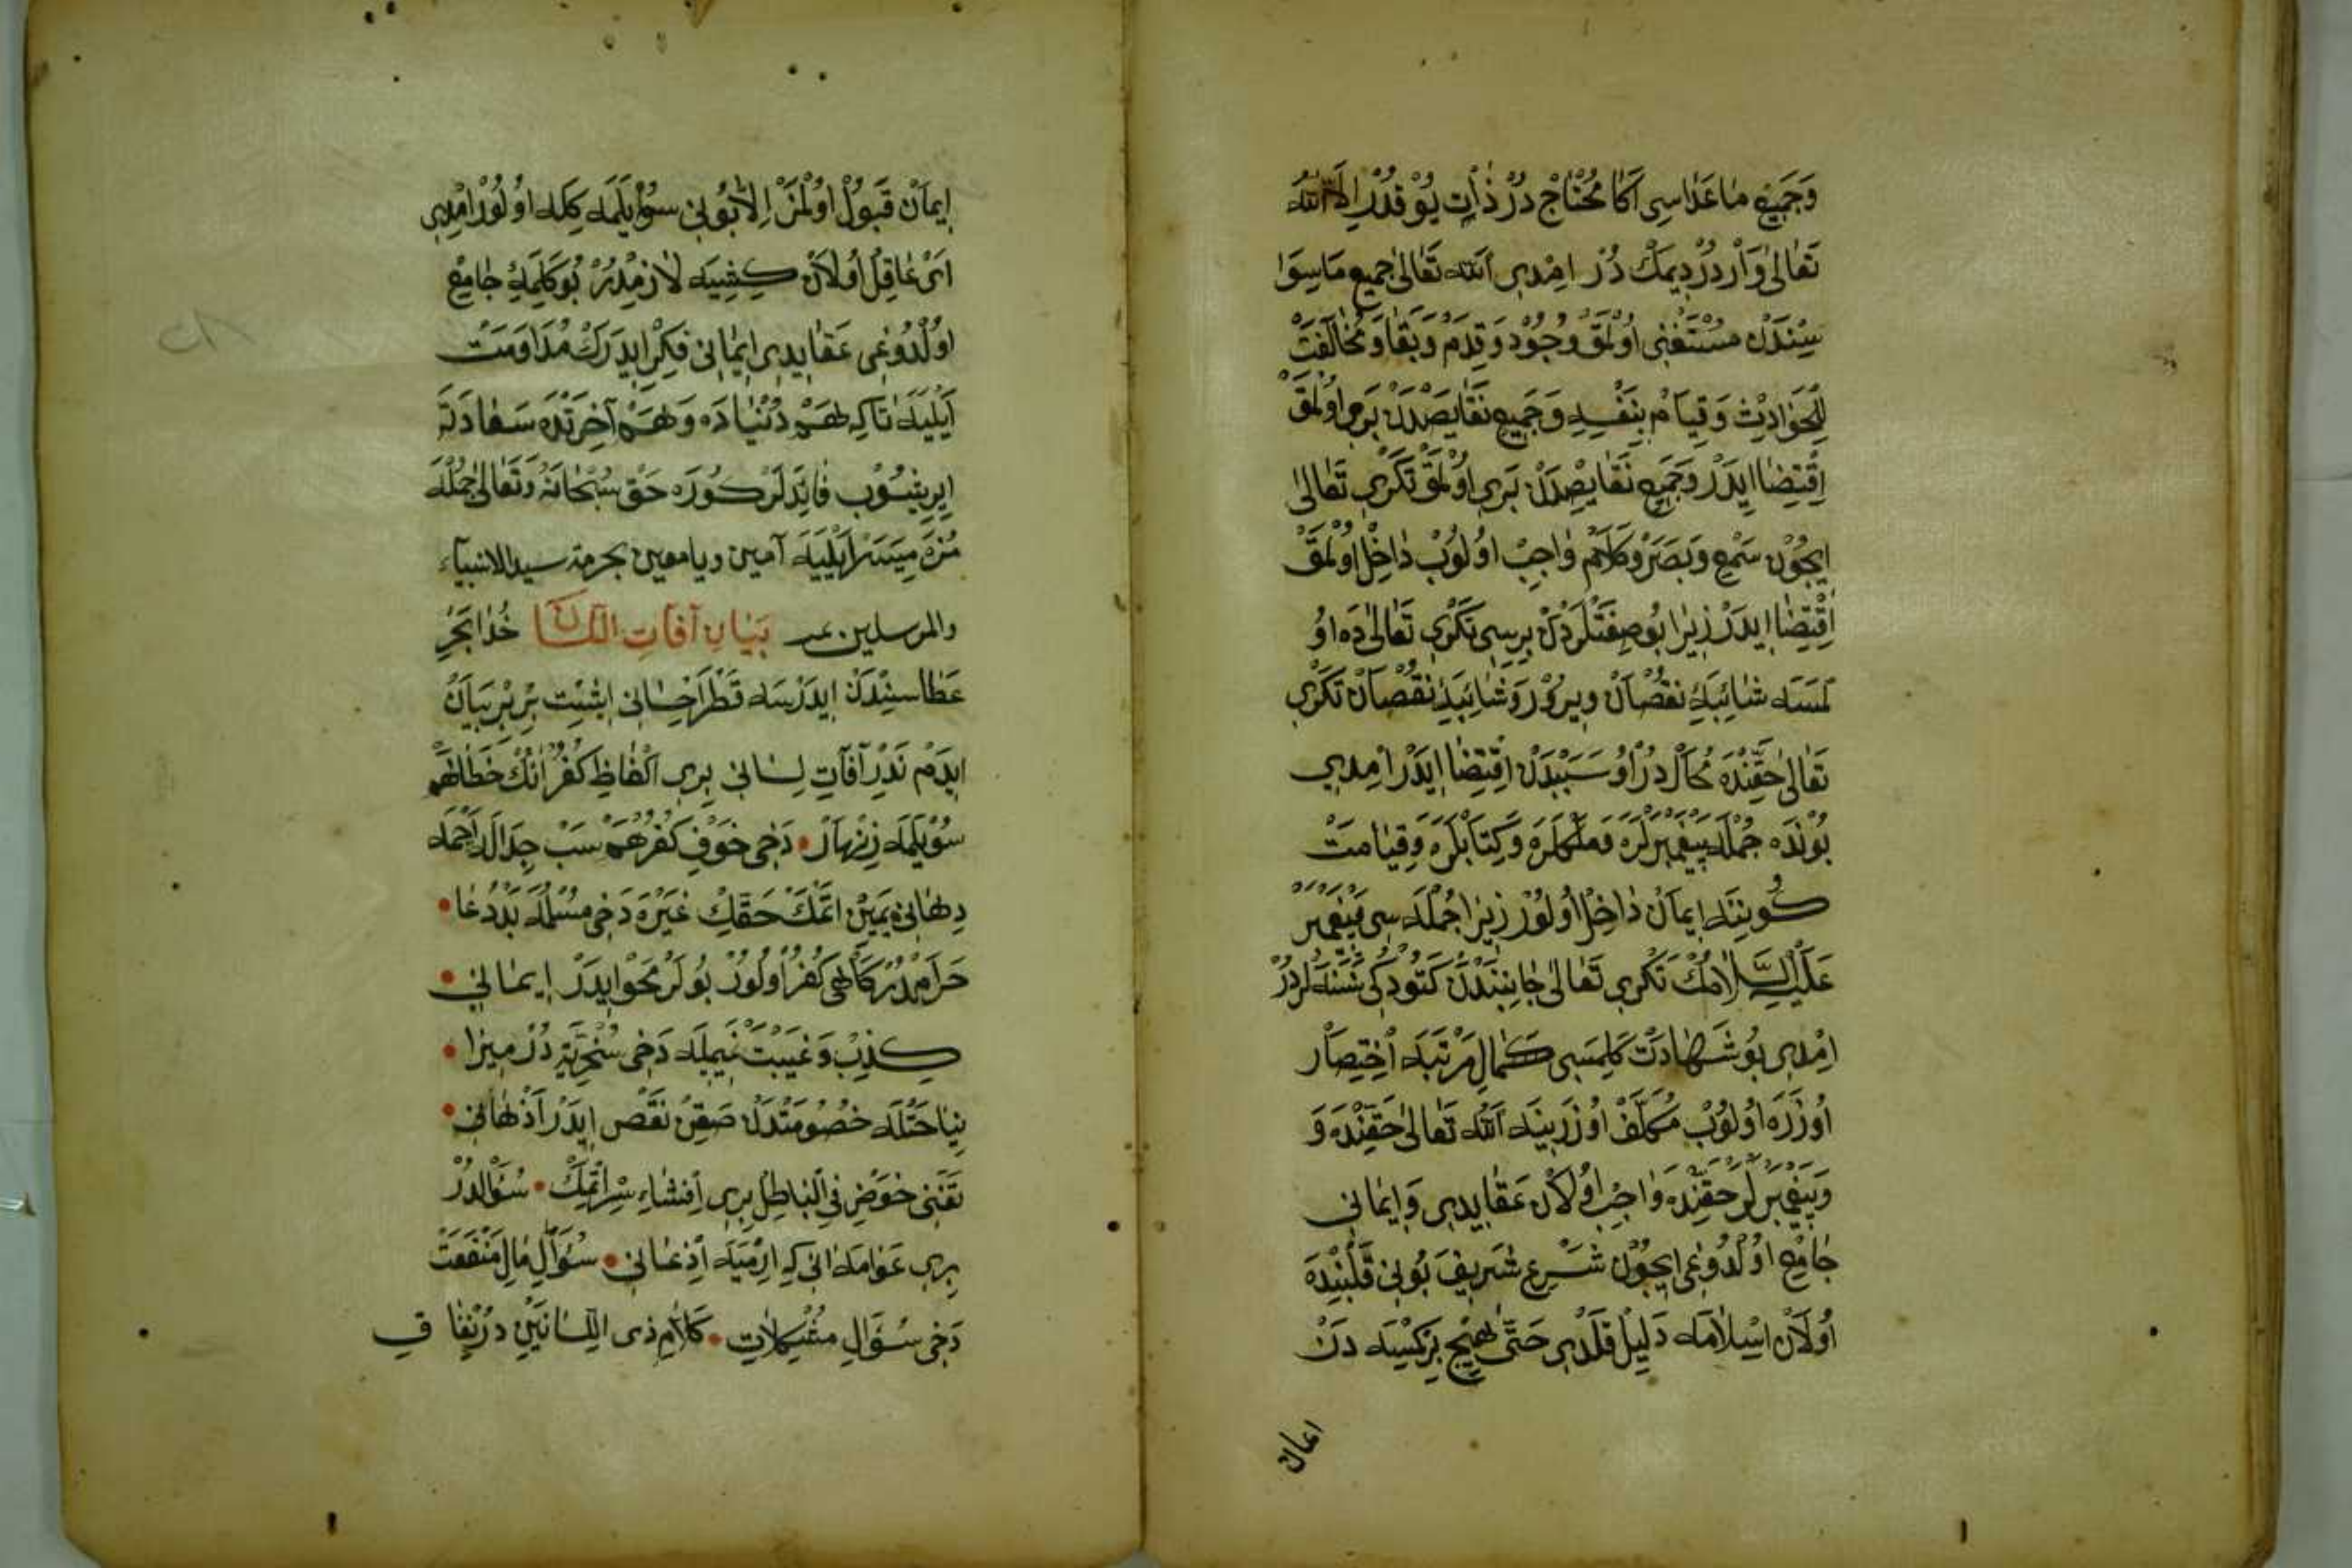 وَجَمِيعِ مَاعَدَاسِی اَكَا مُحْتَاجْ دُرْ ذَاتِ يُوقْدُرْ اِلَّا اللّٰه
تَعَالٰی وَارْدُرْ دِيمَكْ دُرْ اِمْدِی اَللّٰه تَعَالٰی جَمِيعِ مَاسِوَا
سِنْدَنْ مُسْتَغْنِی اُولْمَقْ وُجُودْ وَقِدَمْ وَبَقَا وَمُخَالَفَتْ
لِلْحَوَادِثِ وَقِيَامْ بِنَفْسِهِ وَجَمِيعِ نَقَايِصْدَنْ بَرِی اُولْمَقْ
اِقْتِضَا ايدَرْ وَجَمِيعِ نَقَايِصْدَنْ بَرِی اُولْمَقْ تَكْرِی تَعَالٰی
ايچُونْ سَمْعِ وَبَصَرْ وَكَلَامْ وَاجِبْ اُولُوبْ دَاخِلْ اُولْمَقْ
اِقْتِضَا ايدَرْ زِيرَا بُو صِفَتْلَرْدَنْ بِرِيسِی تَكْرِی تَعَالٰی دَه اُو
لْمَسَه شَائِبَۀِ نُقْصَانْ ويرُورْ وَشَائِبَۀِ نُقْصَانْ تَكْرِی
تَعَالٰی حَقِّنْدَه مُحَالْ دُرْ اُو سَبَبْدَنْ اِقْتِضَا ايدَرْ اِمْدِی
بُونْدَه جُمْلَه پَيْغَمْبَرْلَرَه وَمَلَكْلَرَه وَكِتَابْلَرَه وَقِيَامَتْ
كُونِنَه اِيمَانْ دَاخِلْ اُولُورْ زِيرَا جُمْلَه سِی پَيْغَمْبَرْ
عَلَيْهِ السَّلَامُكْ تَكْرِی تَعَالٰی جَانِبِنْدَنْ كَتُورْدُكِی نَسْنَه لَرْدُرْ
اِمْدِی بُو شَهَادَتْ كَلِمَسِی كَمَالِ مَرْتَبَه اِخْتِصَارْ
اُوزَرَه اُولُوبْ مُكَلَّفْ اُوزَرِينَه اَللّٰه تَعَالٰی حَقِّنْدَه وَ
وَپَيْغَمْبَرْلَرْ حَقِّنْدَه وَاجِبْ اُولَانْ عَقَايِدِی وَاِيمَانِی
جَامِعْ اُولْدُوغِی ايچُونْ شَرْعِ شَرِيفْ بُونِی قَلْبِنْدَه
اُولَانْ اِسْلَامَه دَلِيلْ قِلْدِی حَتّٰی هِيچْ بِرْ كِمْسَه دَنْ
ايمان
اِيمَانْ قَبُولْ اُولْمَزْ اِلَّا بُونِی سُويْلَمَكِلَه اُولُورْ اِمْدِی
اَیْ عَاقِلْ اُولَانْ كِشِيَه لَازِمْدُرْ بُو كَلِمَۀِ جَامِعْ
اُولْدُوغِی عَقَايِدِی اِيمَانِی فِكْرْ ايدَرَكْ مُدَاوَمَتْ
اَيْلَيَه تَا كِه هَمْ دُنْيَادَه وَهَمْ آخِرَتْدَه سَعَادَتَه
ايرِيشُوبْ فَائِدَلَرْ كُورَه حَقْ سُبْحَانَهُ وَتَعَالٰی جُمْلَه
مُزَه مُيَسَّرْ اَيْلَيَه آمين ويا معين بحرمة سيد الانبياء
والمرسلين بَيَانِ آفَاتِ اللِّسَان خُدَا بَحْرِ
عَطَاسِنْدَنْ ايدَرْسَه قَطْرَه اِحْسَانِی اِيشِتْ بِرْ بِرْ بَيَانْ
ايدَمْ نَدِرْ آفَاتِ لِسَانِی بِرِی اَلْفَاظِ كُفْرْ اَنُكْ خَطَا هَمْ
سُويْلَمَه زِنْهَارْ • دَخِی خَوْفِ كُفْرْ هَمْ سَبْ جِدَالْ
دِهَانِی يَمِينْ اِتْمَكْ حَقِكْ غَيْرَه دَخِی مُسْلِمَه بَدْ دُعَا •
حَرَامْدُرْ كَاهِی كُفْرْ اُولُورْ بُولَرْ مَحْو ايدَرْ اِيمَانِی •
كِذِبْ وَغَيْبَتْ نَمِيمَه دَخِی سُخْرِيَه دُرْ ميزا •
نِيَاحَتْلَه خُصُومَتْدَنْ صَقِنْ نَقْصْ ايدَرْ اَذْهَانِی •
تَغَنِّی خَوْضِ فِی الْبَاطِلْ بِرِی اِفْشَاءِ سِرْ اِتْمَكْ • سُؤَالْدُرْ
بِرِی عَوَامَه اَنِی كِه اِرْمَيَه اِذْعَانِی • سُؤَالِ مَالِ مَنْفَعَتْ
دَخِی سُؤَالِ مُشْكِلَاتِ • كَلَامِ ذِی اللِّسَانَيْنِ دُرْ نِفَاقِ